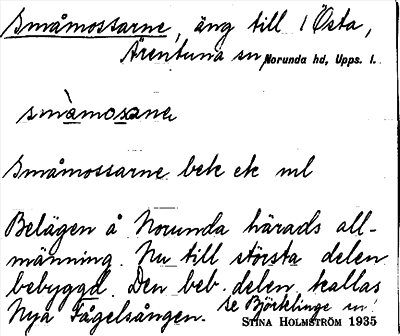 Småmossarne, äng till 1 Östa,
Ärentuna sn Norunda hd, Upps. l.
småmosana
Småmossarne bek ek ml
Belägen å Norunda härads all-
männing. Nu till största delen
bebyggd. Den beb. delen kallas
Nya Fågelsången. se Björklinge sn!
STINA HOLMSTRÖM 1935